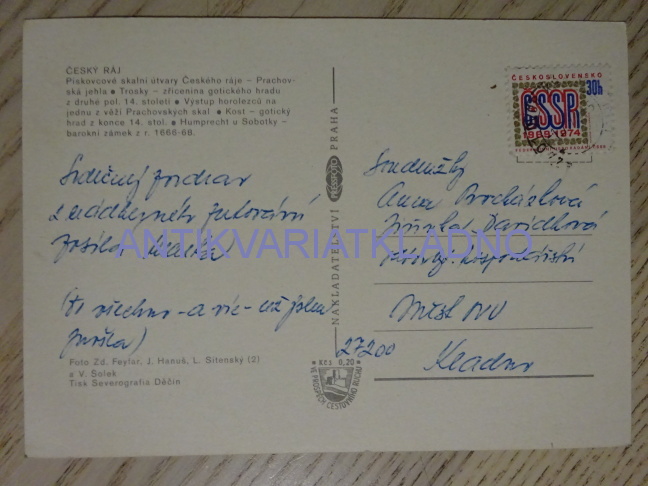 ČESKÝ RÁJ
Pískovcové skalní útvary Českého ráje – Prachov-
ská jehla • Trosky – zřícenina gotického hradu
z druhé pol. 14. století • Výstup horolezců na
jednu z věží Prachovských skal • Kost – gotický
hrad z konce 14. stol. • Humprecht u Sobotky –
barokní zámek z r. 1666-68.
Srdečný pozdrav
z nádherného putování
posílá
(to všechno – a víc – což jsem
prošla)
Foto Zd. Feyfar, J. Hanuš, L. Sitenský (2)
a V. Solek
Tisk Severografia Děčín
NAKLADATELSTVÍ PRESSFOTO PRAHA
Kčs 0,20
VE PROSPĚCH CESTOVNÍHO RUCHU
ČESKOSLOVENSKO
30h
ČSSR
1969 1974
Soudružky
Anna Procházková
Davidková
hospodářství
Měst NV
27200
Kladno
ANTIKVARIATKLADNO